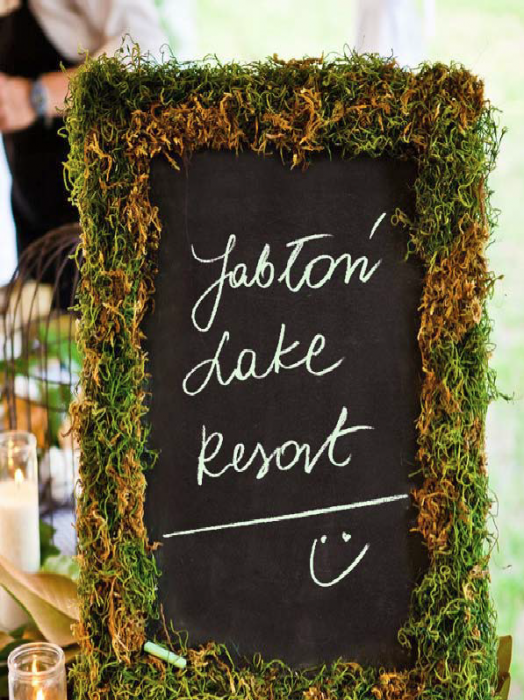 Jabłoń
Lake
Resort